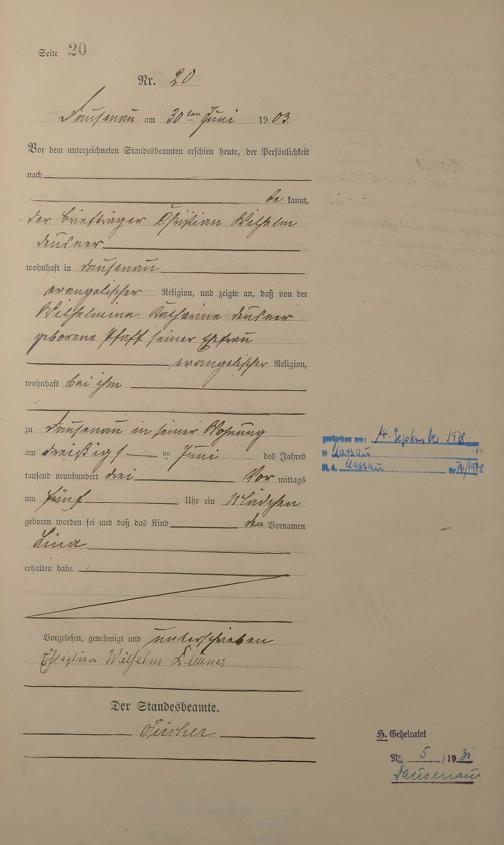 Seite 20
Nr. 20
Dausenau am 30ten Juni 1903
Vor dem unterzeichneten Standesbeamten erschien heute, der Persönlichkeit
nach
be kannt,
der Briefträger Christian Wilhelm
wohnhaft in Dausenau
evangelischer Religion, und zeigte an, daß von der
Wilhelmine Katharine
geborene Pfaff seiner Ehefrau
evangelischer Religion,
wohnhaft bei ihm
zu Dausenau in seiner Wohnung
am dreißigs ten Juni des Jahres
tausend neunhundert drei Vor mittags
um fünf Uhr ein Mädchen
geboren worden sei und daß das Kind den Vornamen
Lina
erhalten habe.
Vorgelesen, genehmigt und unterschrieben
Christian Wilhelm
Der Standesbeamte.
gestorben am: 14. September 1978
in Nassau
St. A. Nassau Nr. 76/1978
H. Geheiratet
No 5 /19 31
Dausenau